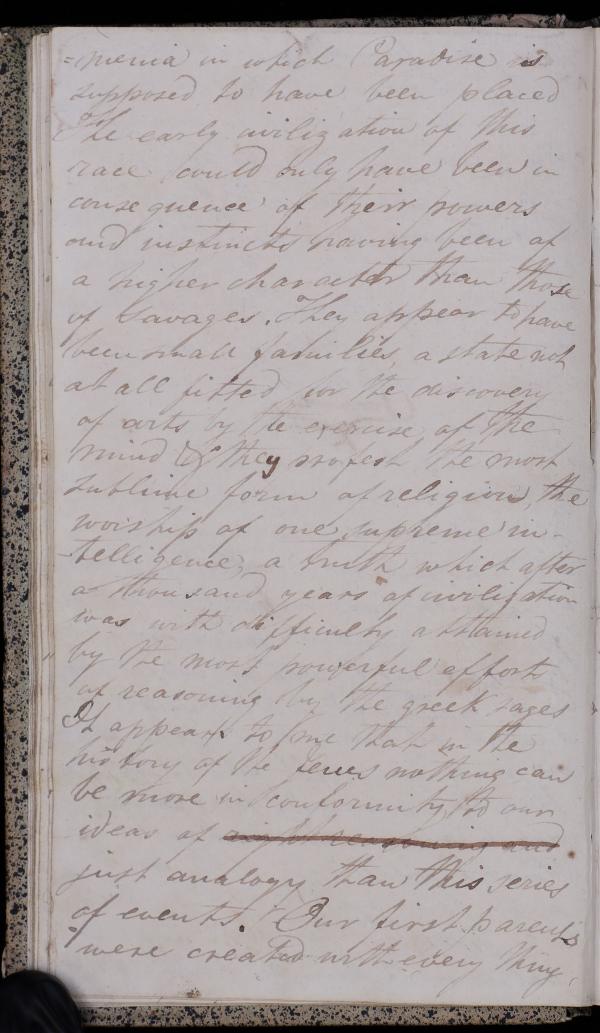 =menia in which Paradise is
supposed to have been placed
The early civilization of this
race could only have been in
consequence of their powers
and instincts having been of
a higher character than those
of Savages. They appear to have
been small families, a state not
at all fitted for the discovery
of arts by the exercise of the
mind & they profest the most
sublime form of religion, the
worship of one supreme in-
telligence, a truth which after
a thousand years of civilization
was with difficulty attained
by the most powerful efforts
of reasoning by the greek sages
It appears to me that in the
history of the Jews nothing can
be more in conformity to our
ideas of right reasoning and
just analogy than this series
of events. Our first parents
were created with every thing